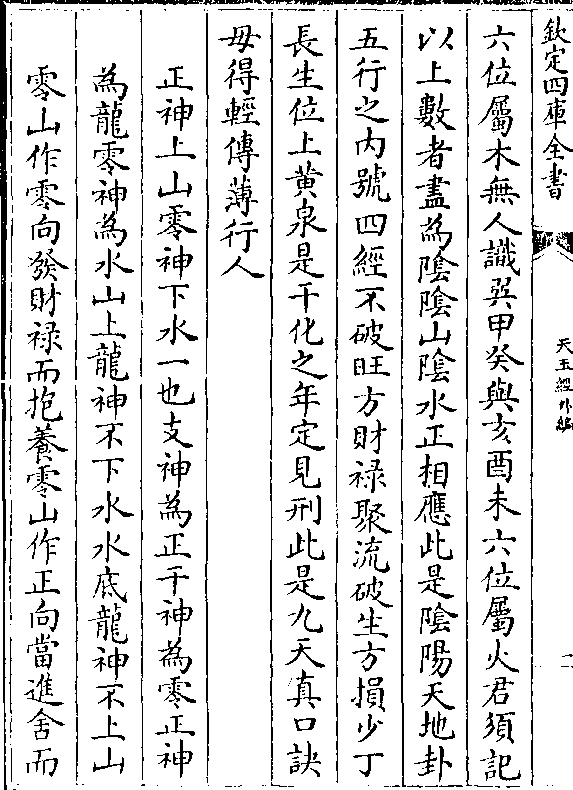 欽定四庫全書
天玉經外編
二
六位屬木無人識巽甲癸與亥酉未六位屬火君須記
以上數者盡為陰陰山陰水正相應此是陰陽天地卦
五行之内號四經不破旺方財禄聚流破生方損少丁
長生位上黄泉是干化之年定見刑此是九天真口訣
毋得輕傳薄行人
正神上山零神下水一也支神為正干神為零正神
為龍零神為水山上龍神不下水水底龍神不上山
零山作零向發財禄而抱養零山作正向當進舍而